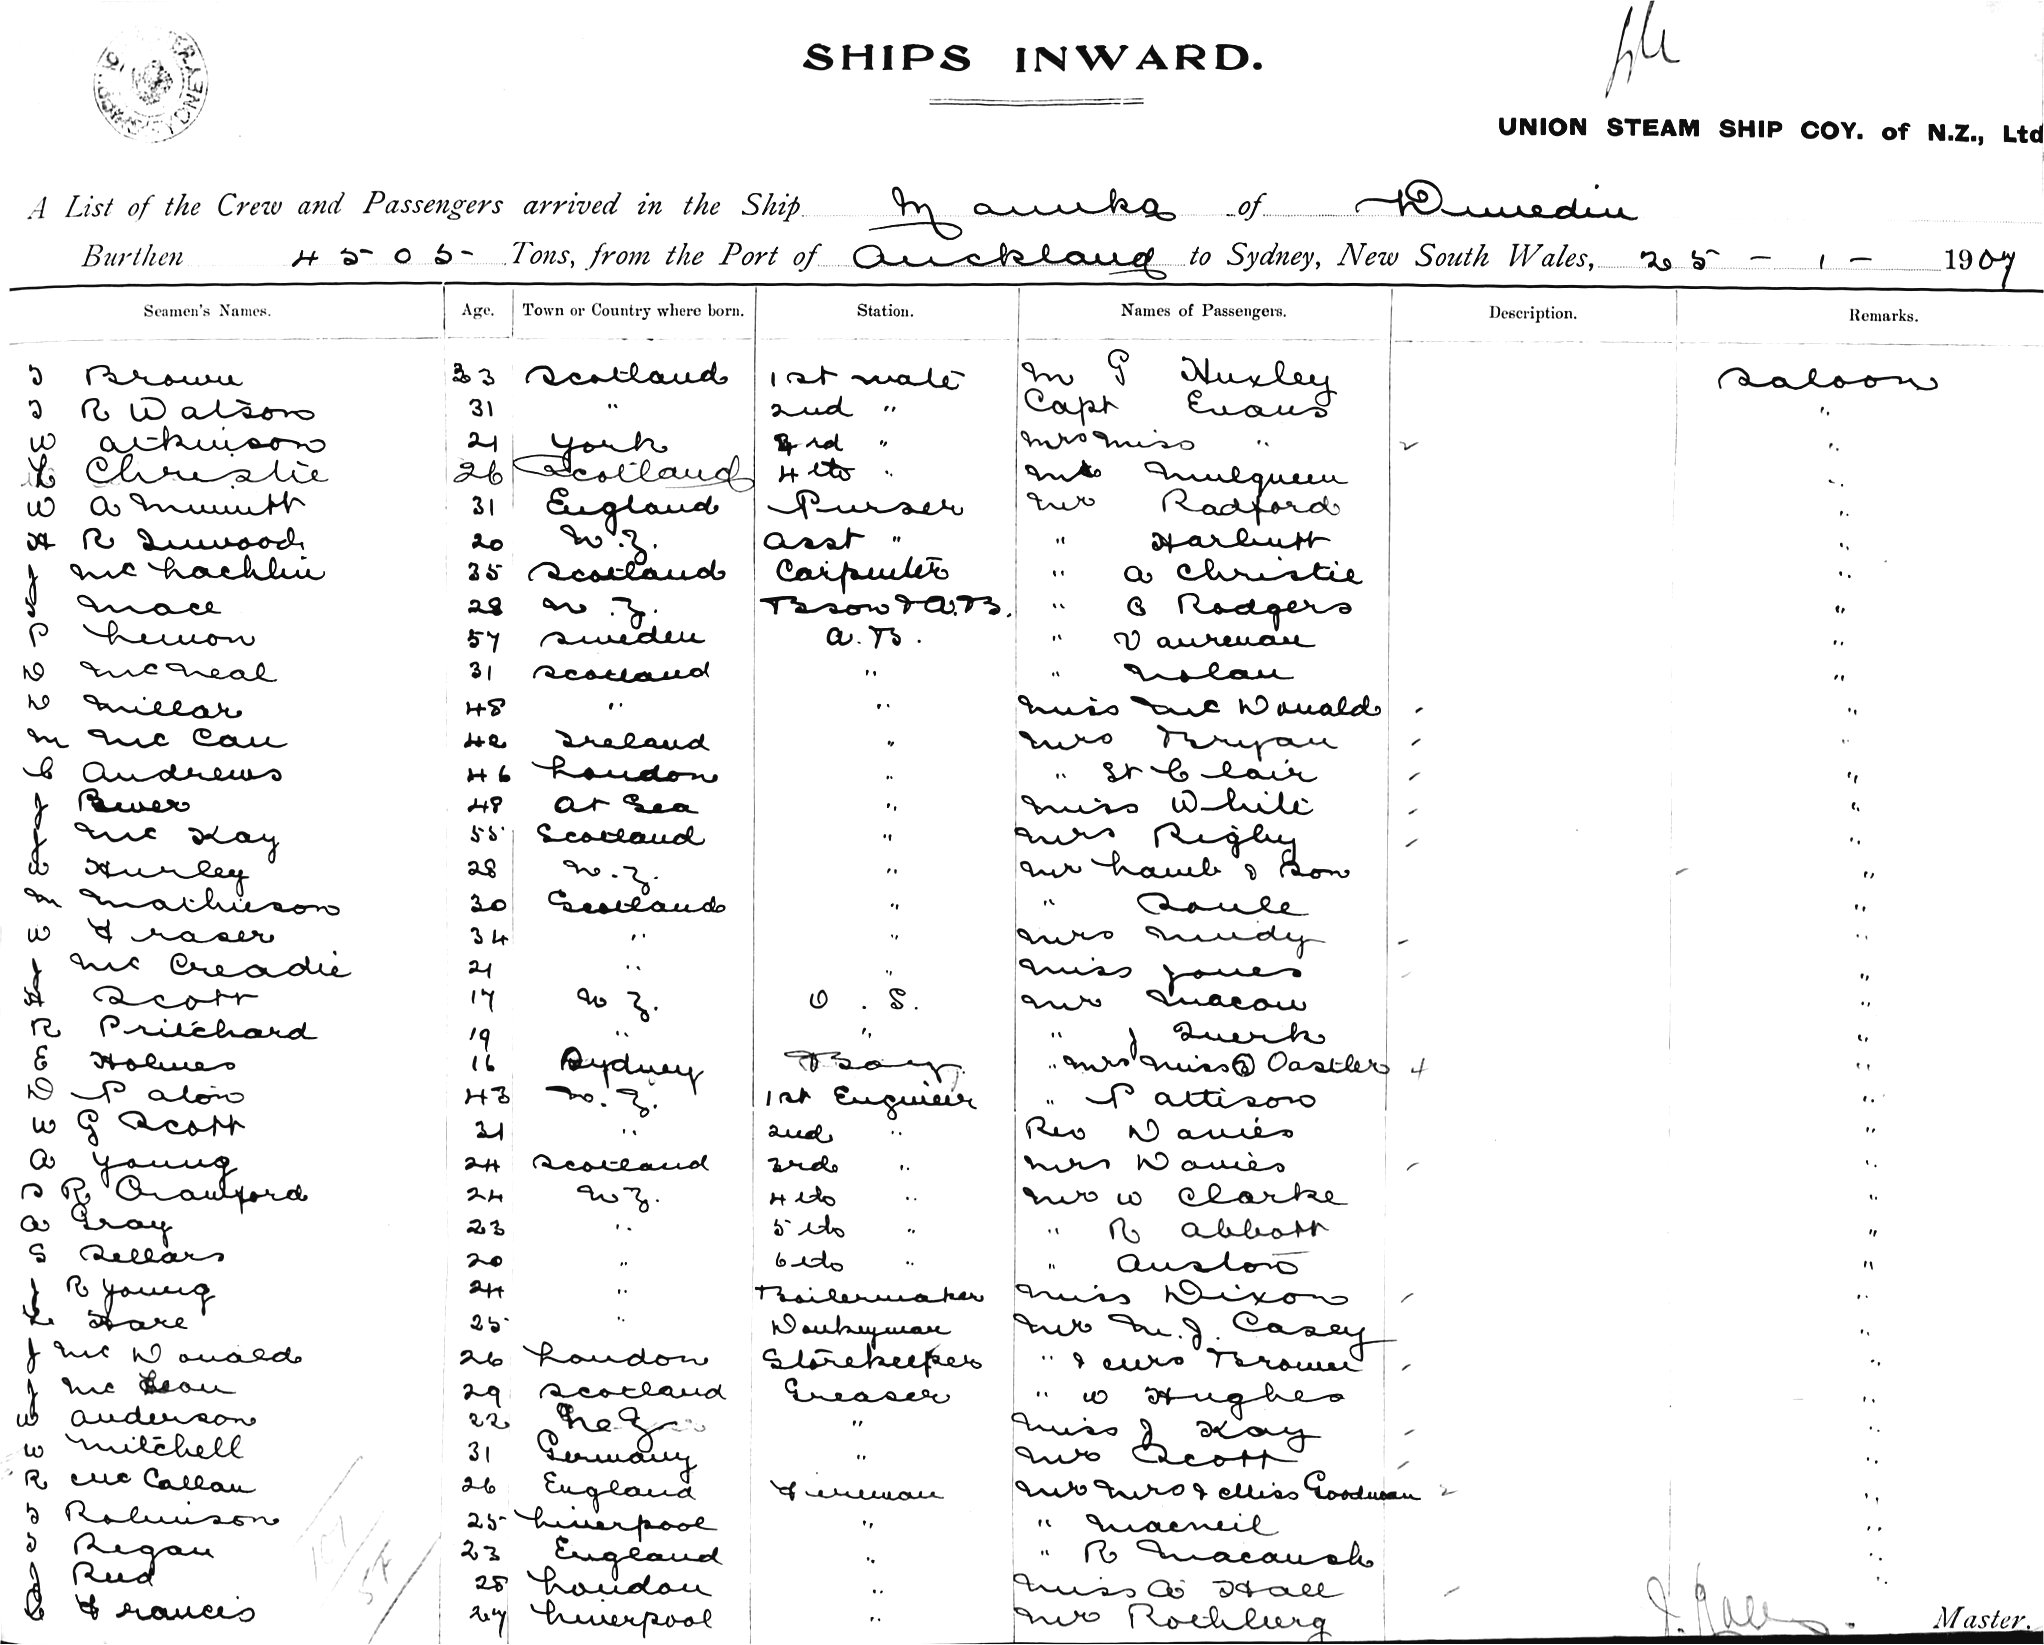 SHIPS INWARD.
UNION STEAM SHIP COY. of N.Z., Ltd
A List of the Crew and Passengers arrived in the Ship Manuka of Dunedin
Burthen 4505 Tons, from the Port of Auckland to Sydney, New South Wales, 25 - 1 - 1907
Seamen's Names. Age. Town or Country where born. Station. Names of Passengers. Description. Remarks.
J Brown 33 Scotland 1st mate M G Huxley Saloon
J R Watson 31 " 2nd " Capt Evans "
W Atkinson 21 York 3rd " Mrs Miss " 2 "
L Christie 26 Scotland 4th " Mr Mulqueen "
W A Minnitt 31 England Purser Mr Radford "
H R Inwood 20 N.Z. Asst " " Harbutt "
J McLachlin 35 Scotland Carpenter " A Christie "
S Mace 28 N.Z. Bson & A.B. " C Rodgers "
P Lennon 57 Sweden A.B. " Vaureman "
D McNeal 31 Scotland " " Nolan "
D Millar 48 " " Miss McDonald "
M McCan 42 Ireland " Mrs Bryan "
C Andrews 46 London " " St Clair "
J Bever 48 At Sea " Miss White "
J McKay 55 Scotland " Mrs Rigby "
W Hurley 28 N.Z. " Mr Lamb & Son "
M Mathieson 30 Scotland " " Soule "
W Fraser 34 " " Mrs Mundy "
J McCreadie 21 " " Miss Jones "
H Scott 17 N Z. O.S. Mr Macow "
R Pritchard 19 " " " J Zuerk "
E Holmes 16 Sydney Boy " Mrs Miss Oastler 4 "
D Paton 43 N.Z. 1st Engineer " Pattison "
W G Scott 31 " 2nd " Rev Davies "
A Young 24 Scotland 3rd " Mrs Davies "
J R Crawford 24 N.Z. 4th " Mr W Clarke "
A Gray 23 " 5th " " R Abbott "
S Sellars 20 " 6th " " Auston "
J R Young 24 " Boilermaker Miss Dixon "
L Hare 25 " Donkeyman Mr M.J. Casey "
J McDonald 26 London Storekeeper " & Mrs Brown "
J McLean 29 Scotland Greaser " W Hughes "
W Anderson 22 " Miss J Kay "
W Mitchell 31 Germany " Mr Scott "
R McCallan 26 England Fireman Mr Mrs & Miss Goodman 2 "
J Robinson 25 Liverpool " " Macneil "
J Regan 23 England " " R Macaush "
J Reid 28 London " Miss A Hall "
C Francis 27 Liverpool " Mr Rothberg
Master.